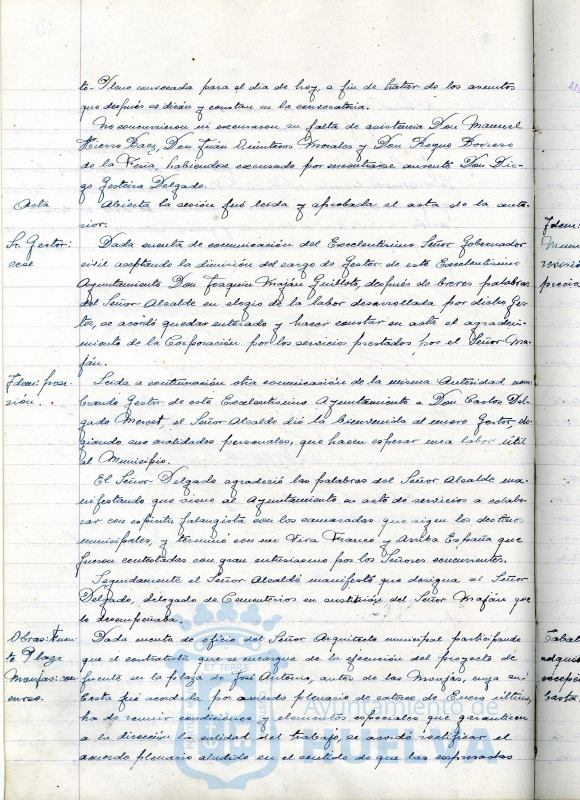 to-Pleno convocada para el dia de hoy a fin de tratar de los asuntos
que después se dirán y constan en la convocatoria.
No concurrieron ni excusaron su falta de asistencia Don Manuel
Hierro Baez, Don Juan Quinteros Morales y Don Roque Borrero
de la Feria, habiendose excusado por encontrarse ausente Don Die-
go Gesteira Delgado.
Acta
Abierta la sesión fué leida y aprobada el acta de la ante-
rior.
Sr. Gestor:
cese
Dada cuenta de comunicación del Excelentisimo Señor Gobernador
civil aceptando la dimisión del cargo de Gestor de este Excelentisimo
Ayuntamiento Don Joaquin Maján Guillote, después de breves palabras
del Señor Alcalde en elogio de la labor desarrollada por dicho Ges-
tor, se acordó quedar enterado y hacer constar en acta el agradeci-
miento de la Corporación por los servicios prestados por el Señor Ma-
ján.
Idem: pose-
sión.
Leida a continuación otra comunicación de la misma Autoridad nom-
brando Gestor de este Excelentisimo Ayuntamiento a Don Carlos Del-
gado el Señor Alcalde dió la bienvenida al nuevo Gestor, elo-
giando sus cualidades personales, que hacen esperar una labor útil
al Municipio.
El Señor Delgado agradeció las palabras del Señor Alcalde ma-
nifestando que viene al Ayuntamiento en acto de servicios a colabo-
rar con espiritu falangista con los camaradas que rigen los destinos
municipales, y terminó con un Viva Franco y Arriba España que
fueron contestados con gran entusiasmo por los Señores concurrentes.
Seguidamente el Señor Alcalde manifestó que designa al Señor
Delgado, delegado de Cementerios en sustitución del Señor Maján que
lo desempeñaba.
Obras: Fuen-
te Plaza
Monjas: con-
curso.
Dada cuenta de oficio del Señor Arquitecto municipal participando
que el contratista que se encargue de la ejecución del proyecto de
fuente en la plaza de José Antonio, antes de las Monjas, cuya su-
basta fué acordada por acuerdo plenario de catorce de Enero último,
ha de reunir condiciones y elementos especiales que garanticen
a la dirección la calidad del trabajo, se acordó rectificar el
acuerdo plenario aludido en el sentido de que las expresadas
Idem:
precios
adqui
basta
Ayuntamiento de
HUELVA